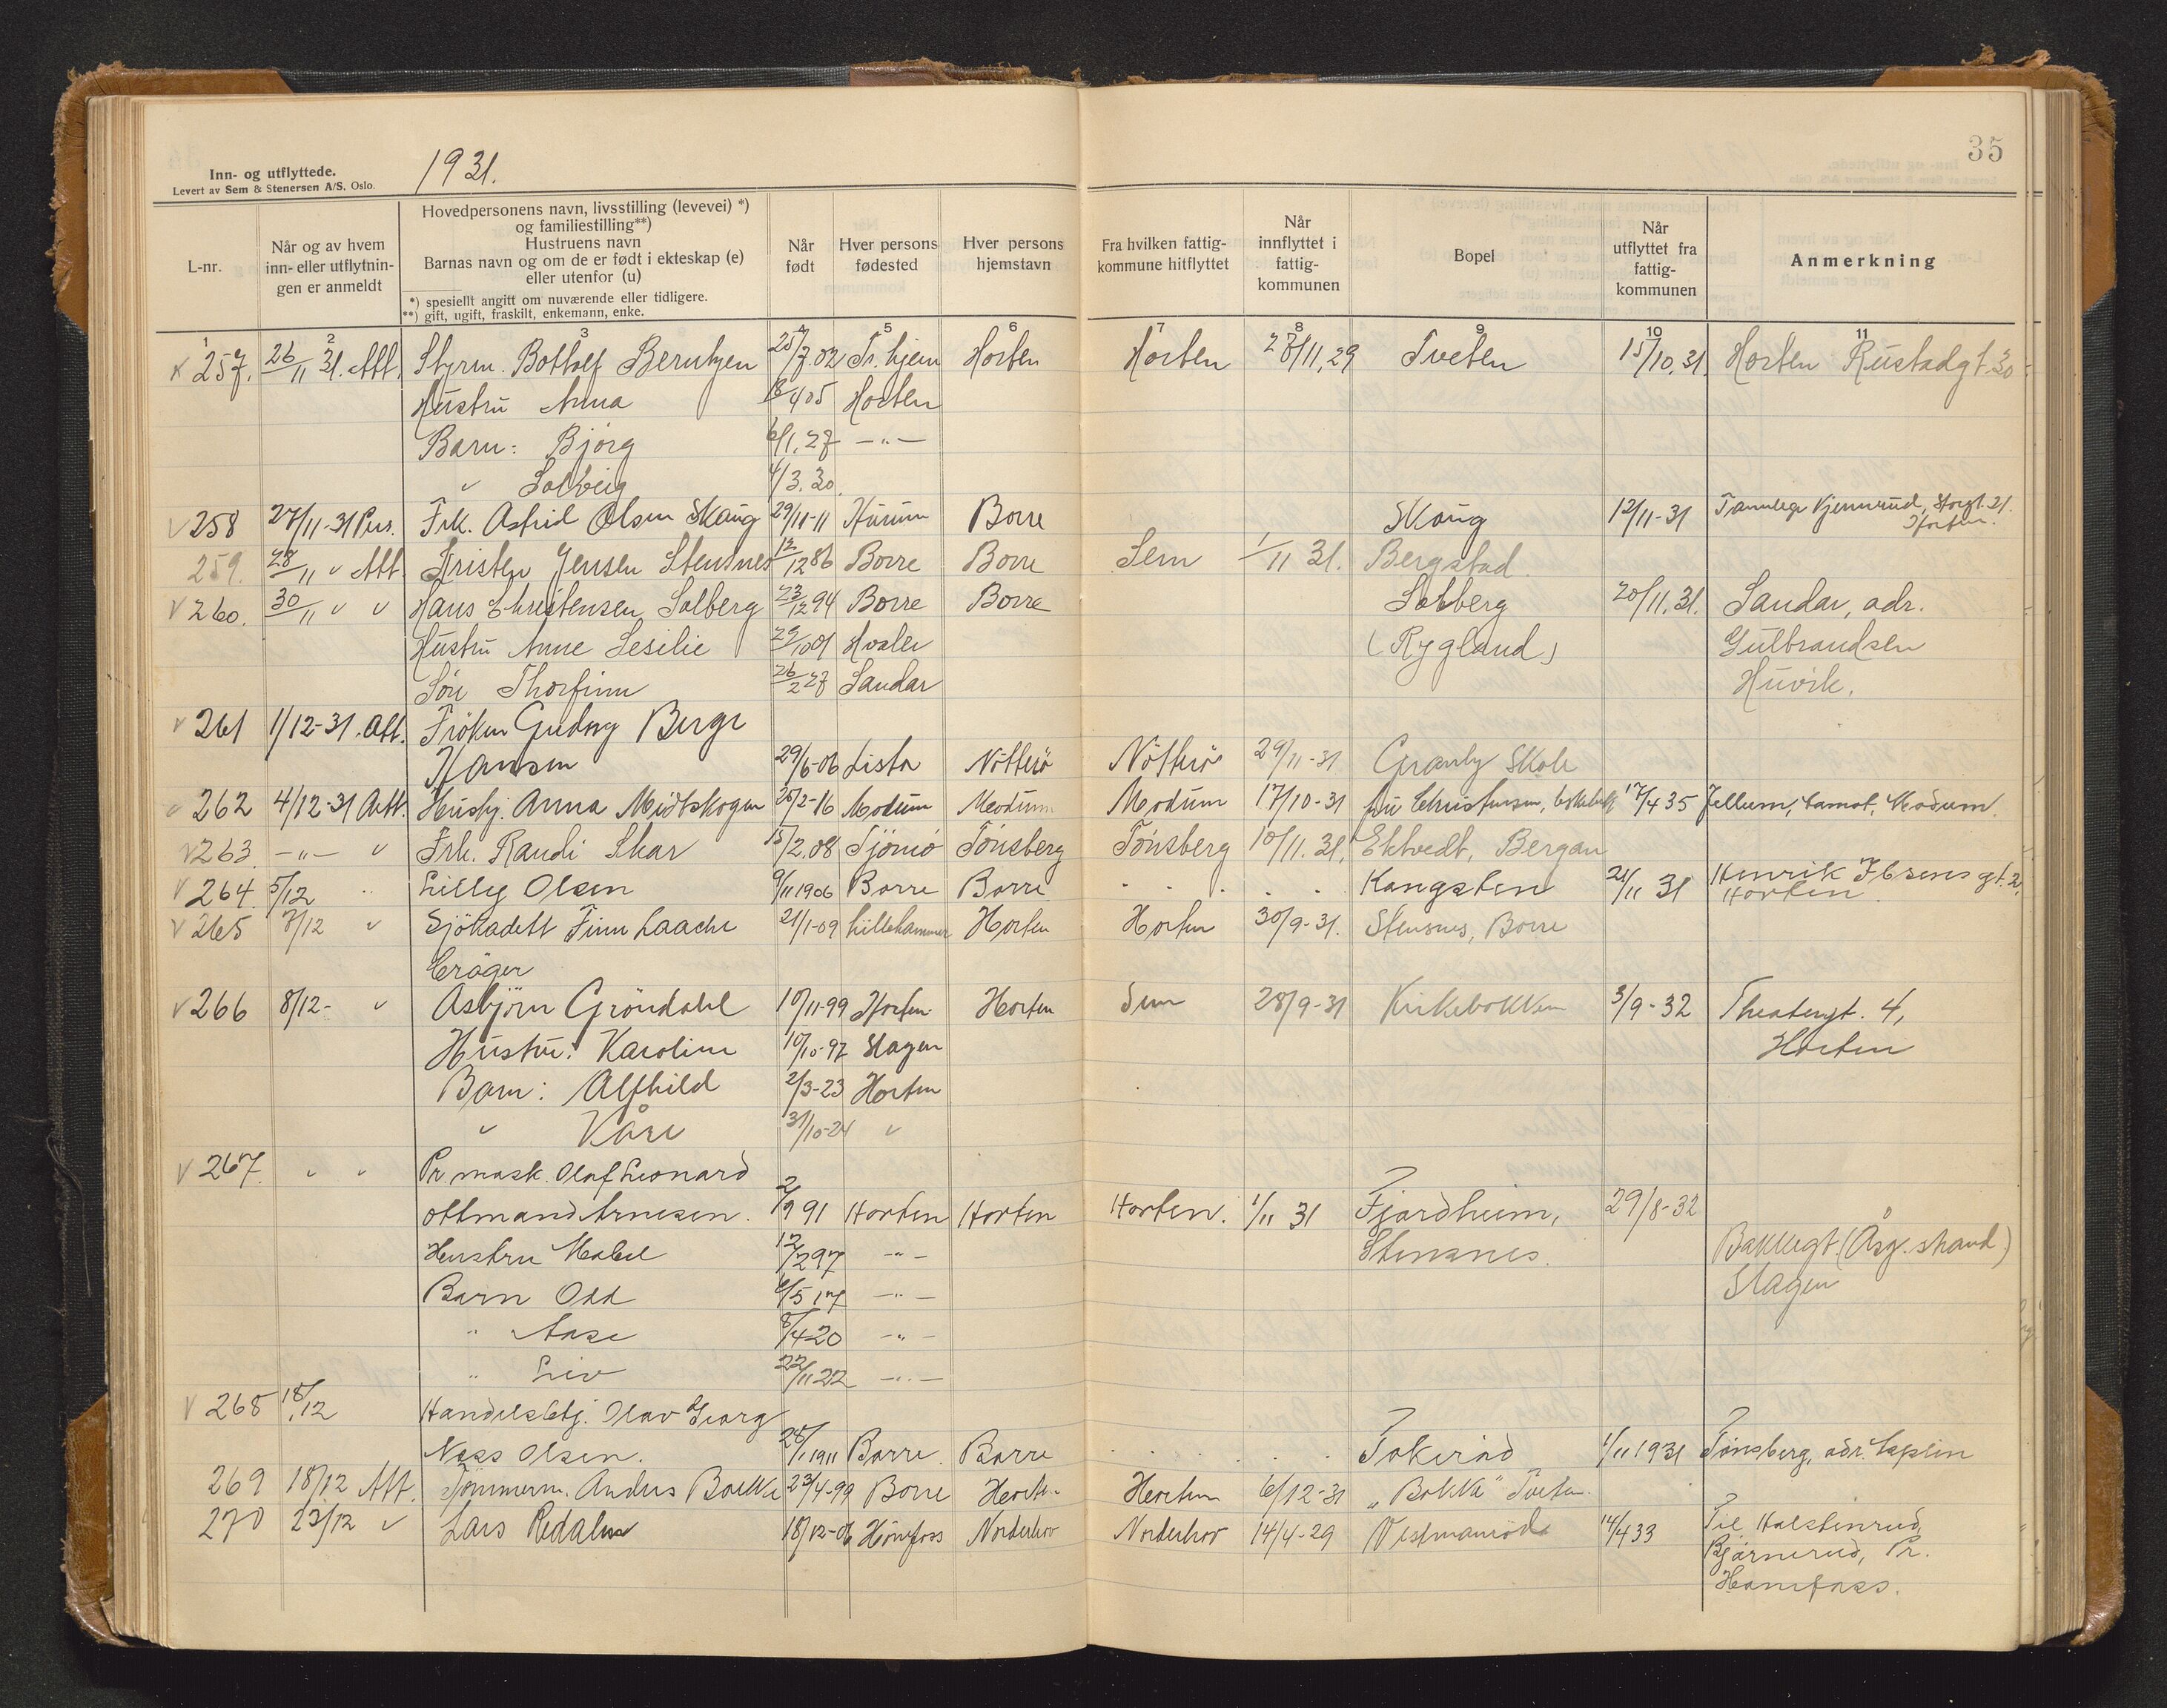 35
Inn- og utflyttede.
Levert av Sem & Stenersen A/S. Oslo.
1931.
L-nr.
Når og av hvem
inn- eller utflytnin-
gen er anmeldt
Hovedpersonens navn, livsstilling (levevei) *)
og familiestilling**)
Hustruens navn
Barnas navn og om de er født i ekteskap (e)
eller utenfor (u)
*) spesiellt angitt om nuværende eller tidligere.
**) gift, ugift, fraskilt, enkemann, enke.
Når
født
Hver persons
fødested
Hver persons
hjemstavn
Fra hvilken fattig-
kommune hitflyttet
Når
innflyttet i
fattig-
kommunen
Bopel
Når
utflyttet fra
fattig-
kommunen
Anmerkning
1 2 3 4 5 6 7 8 9 10 11
257. 26/11 31. Att. Styrm. Bottolf Berntzen 25/7.02 Tr.hjem Horten Horten 28/11.29 Tveten 15/10.31. Horten Rustadgt. 30
Hustru Anna 405 Horten
Barn: Bjørg 6/1.27 —"—
" Solveig 4/3.30.
258 27/11-31 Pers. Frk. Astrid Olsen Skaug 29/11-11 Hurum Borre Skaug 12/11-31 Tannlege Gjennrud, Storgt. 21.
Horten.
259. 28/11 " Att. Kristen Jensen Stensnes 12/12 86 Borre Borre Sem 1/11 31. Bergstad.
260. 30/11 " " Hans Christensen Solberg 23/12 94 Borre Borre Solberg 20/11.31. Sandar, adr.
Hustru Anne Sesilie 29/10 01 Hvaler (Rygland) Gulbrandsen
Søn Thorfinn 26/2 27 Sandar Huvik.
261 1/12-31. Att. Frøken Gudny Berge
Hansen 29/6-06 Lista Nøtterø Nøtterø 29/11-31 Granly Skole
262 4/12-31 Att. Husbj. Anna Midtskogen 25/2-16 Modum Modum Modum 17/10-31 fru Christensen, 17/4 35 Jellum, Åmot, Modum.
263. —"— " Frk. Randi Skar 15/2.08 Tjømø Tønsberg Tønsberg 10/11.31. Ektvedt, Bergan
264. 5/12 " Lilly Olsen 9/11 1906 Borre Borre . . . . . Kangsten 21/11 31 Henrik Ibsens gt. 2,
Horten.
265 7/12 " Sjøkadett Finn Laache 21/1-09 Lillehammer Horten Horten 30/9-31. Stensnes, Borre
Crøger
266 8/12- " Asbjørn Grøndahl 10/11-99 Horten Horten Sem 28/9-31 Kirkebakken 3/9-32 Theatergt. 4,
Hustru: Karoline 10/10-97 Slagen Horten
Barn: Alfhild 2/3-23 Horten
" Kåre 31/10-24 "
267. " " Pr. mask. Olaf Leonard
Ottmand Arnesen. 2/9 91 Horten Horten Horten. 1/11 31 Fjordheim, 29/8-32
Hustru Mabel 12/2 97 —"— Stensnes. Bakkegt. (Åsg. strand)
Barn Odd 6/5 17 —"— Slagen
" Aase 8/4 20 —"—
" Liv 22/11 22 —"—
268 18/12 Handelsbtj. Olav Georg
Næss Olsen. 28/1 1911 Borre. Borre . . . . . Tokerød 1/11 1931 Tønsberg, adr.
269 18/12 Att. Tømmerm. Anders Bakke 23/4-99 Borre Horten Horten 6/12-31 „Bakka" Tveten.
270 23/12 " Lars Redalen 18/12-06 Hønefoss Norderhov Norderhov 14/4-29 Vestmanrød 14/4 33 Til Halstinrud,
Bjørnerud, Pr.
Hønefoss.